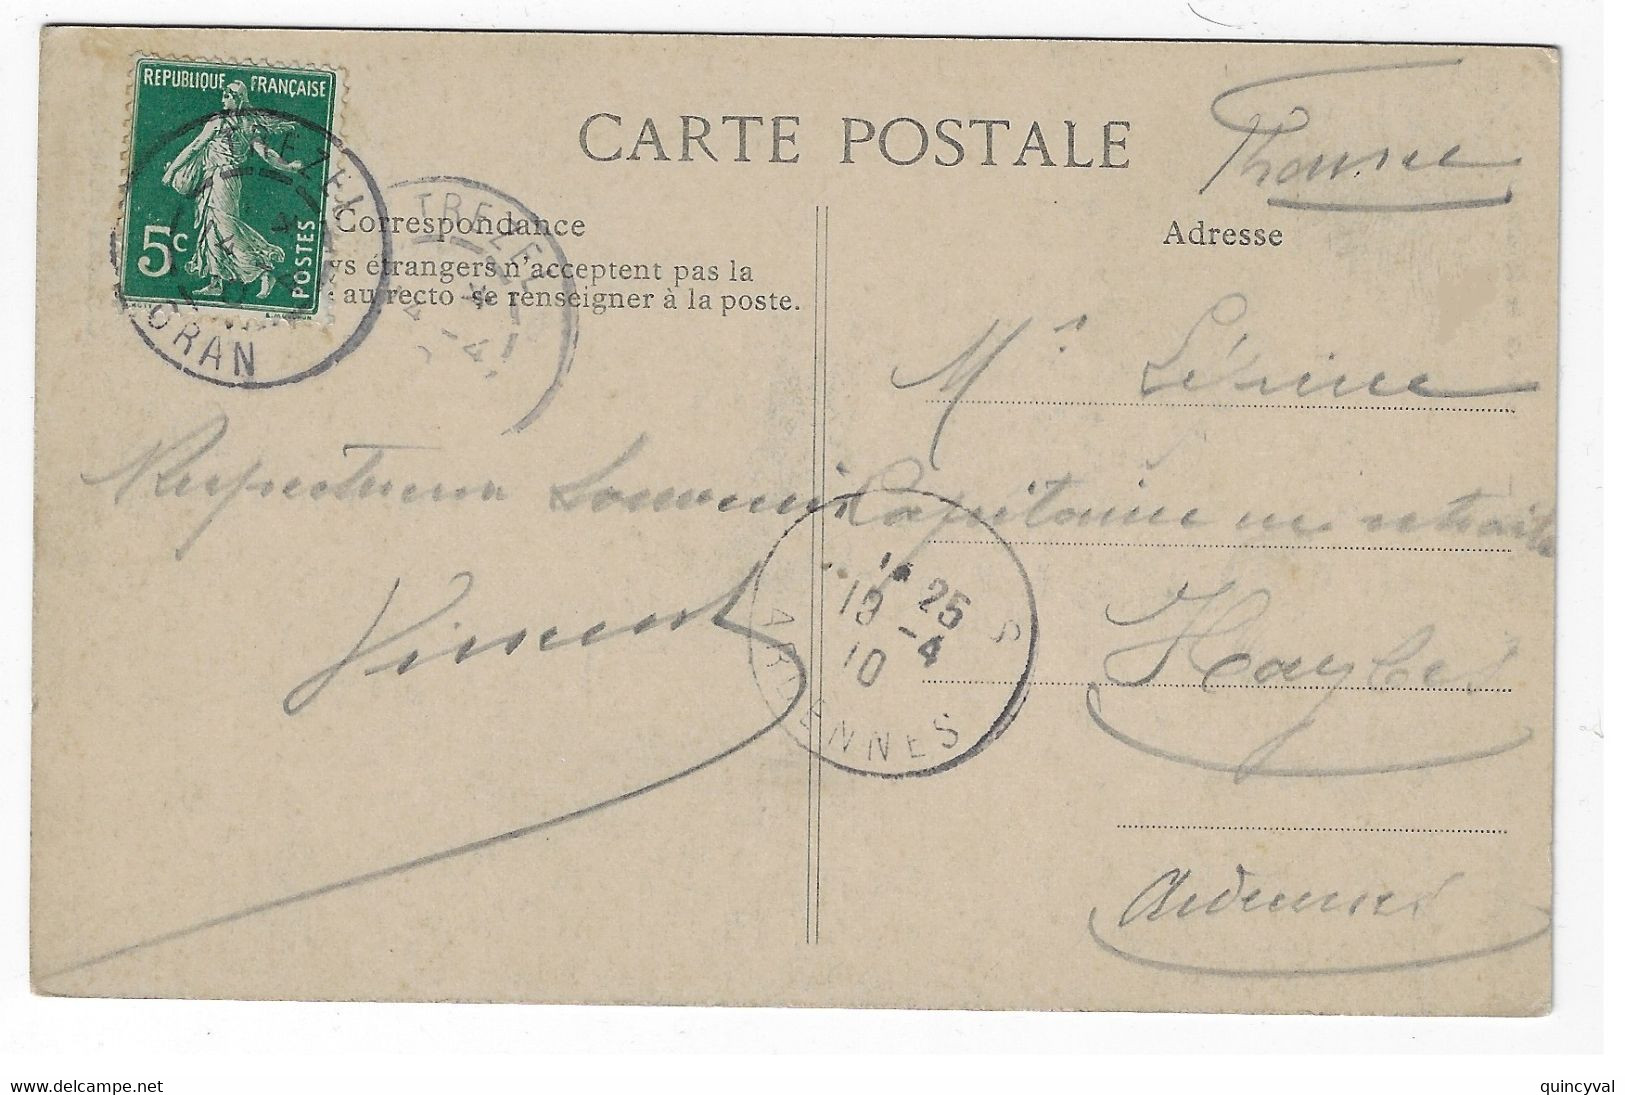 REPUBLIQUE FRANÇAISE
5c
POSTES
TREZEL
ORAN
CARTE POSTALE
France
Correspondance
TREZEL
Adresse
ys étrangers n'acceptent pas la
au recto se renseigner à la poste.
Mr
Respectueux Souvenir
Capitaine en retraite
Vincent
25
19 -4
10
ARDENNES
S
Haybes
Ardennes
www.delcampe.net
quincyval